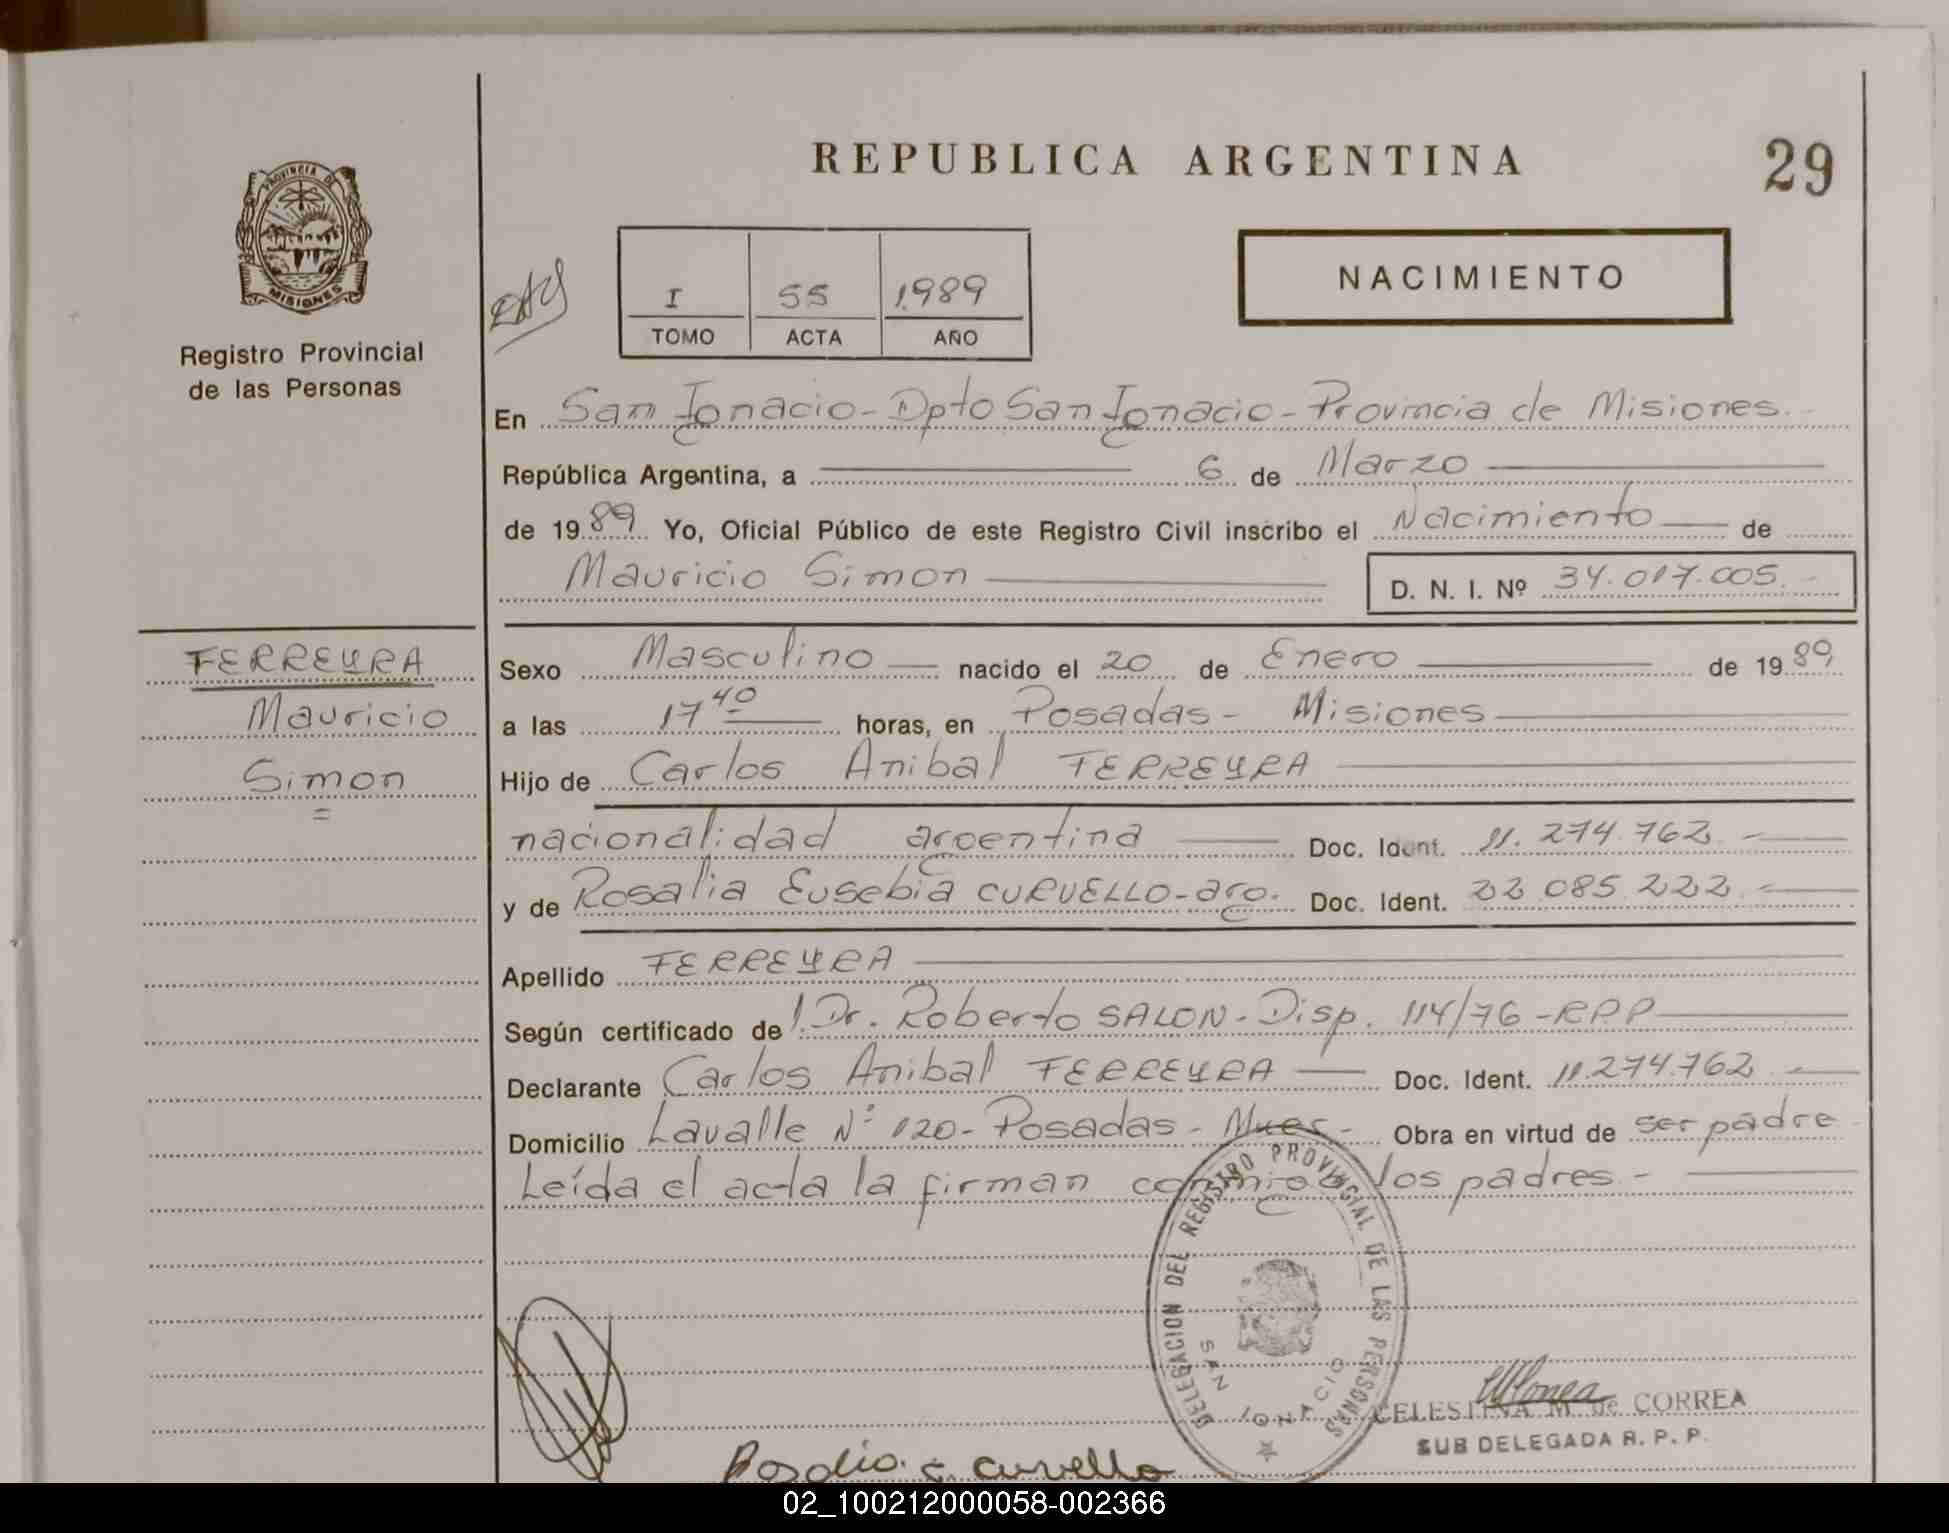 REPUBLICA ARGENTINA
29
PROVINCIA DE
MISIONES
Registro Provincial
de las Personas
I 55 1.989
TOMO ACTA AÑO
NACIMIENTO
En San Ignacio - Dpto San Ignacio - Provincia de Misiones.
República Argentina, a 6 de Marzo
de 1989 Yo, Oficial Público de este Registro Civil inscribo el Nacimiento de
Mauricio Simon D. N. I. Nº 34.017.005.-
FERREYRA
Mauricio
Simon
=
Sexo Masculino nacido el 20 de Enero de 1989
a las 17 40 horas, en Posadas - Misiones
Hijo de Carlos Anibal FERREYRA
nacionalidad argentina Doc. Ident. 11.274.762.-
y de Rosalia Eusebia CURVELLO - arg. Doc. Ident. 22.085.222.-
Apellido FERREYRA
Según certificado de Dr. Roberto SALON - Disp. 114/76 - RPP
Declarante Carlos Anibal FERREYRA Doc. Ident. 11.274.762
Domicilio Lavalle Nº 120 - Posadas - Mnes - Obra en virtud de ser padre
Leída el acta la firman conmigo los padres.-
DELEGACION DEL REGISTRO PROVINCIAL DE LAS PERSONAS
SAN IGNACIO
CELESTINA M. de CORREA
SUB DELEGADA R. P. P.
Rosalia E. Curvello
02_100212000058-002366